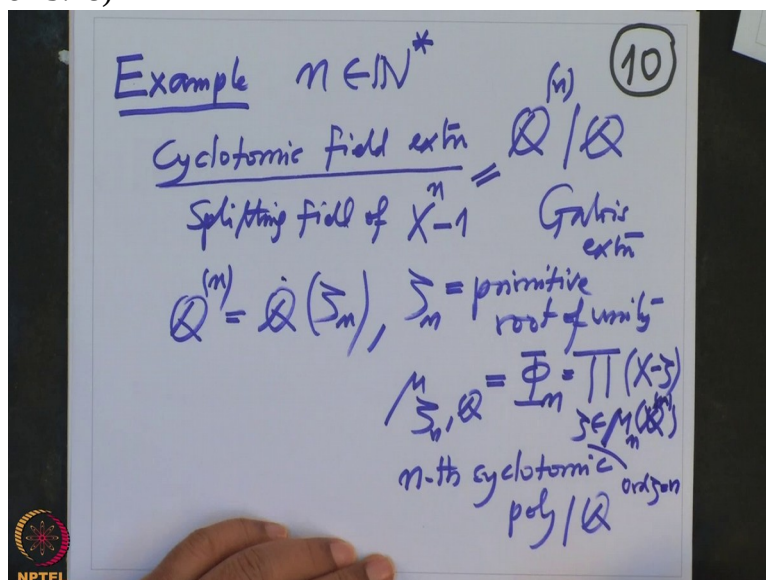 Example n ∈ ℕ* (10)
Cyclotomic field extn = ℚ⁽ⁿ⁾ | ℚ
Splitting field of Xⁿ-1 Galois extn
ℚ⁽ⁿ⁾ = ℚ(ζₙ), ζₙ = primitive root of unity
μ_ζₙ,ℚ = Φₙ = ∏ (X-ζ)
ζ ∈ μₙ(ℚ⁽ⁿ⁾)
n-th cyclotomic
poly / ℚ
NPTEL